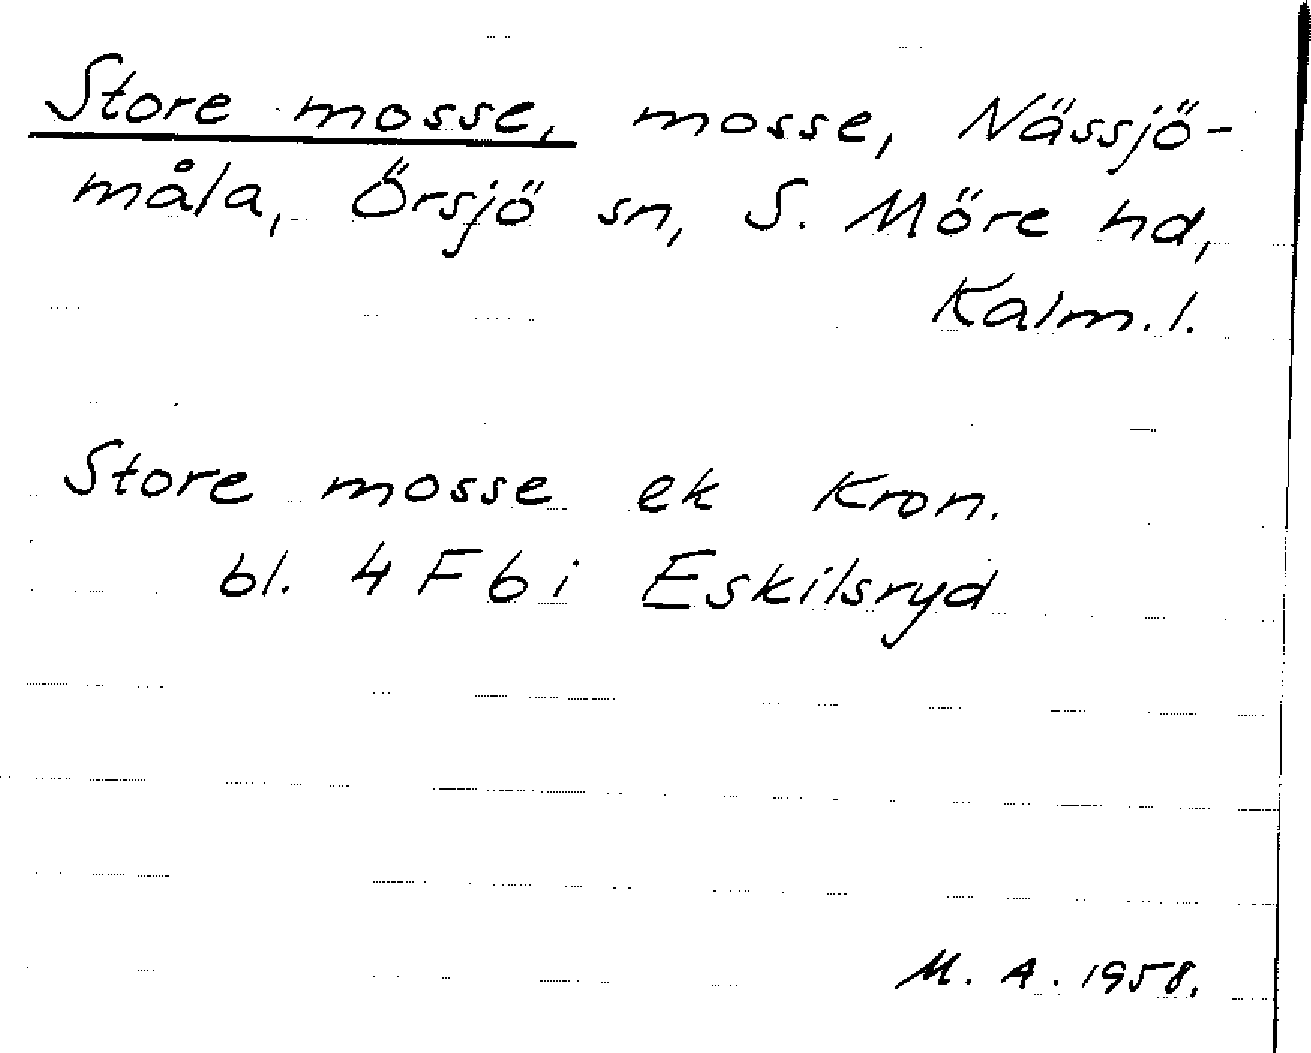 Store mosse, mosse, Nässjö-
måla, Örsjö sn, S. Möre hd,
Kalm. l.
Store mosse ek Kron.
bl. 4 F 6 i Eskilsryd
M. A. 1958.